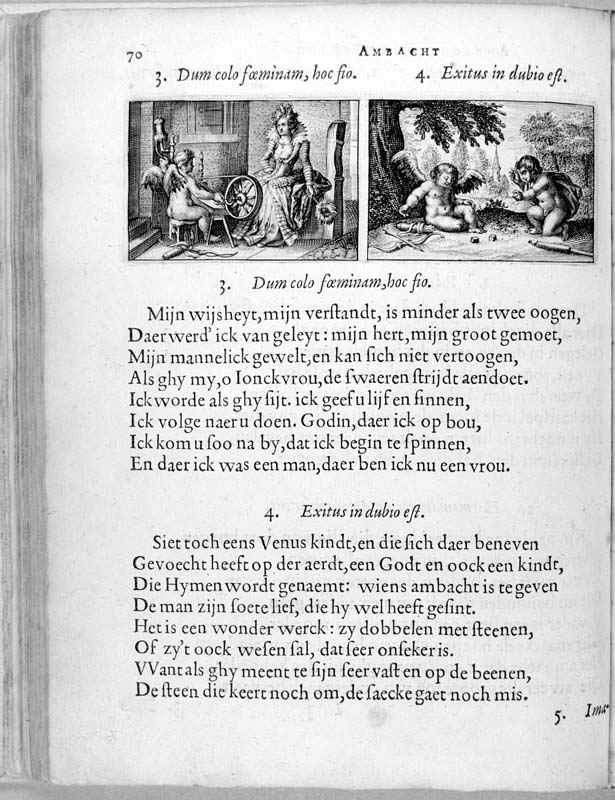 70 AMBACHT
3. Dum colo fœminam, hoc fio. 4. Exitus in dubio eſt.
3. Dum colo fœminam, hoc fio.
Mijn wijsheyt, mijn verſtandt, is minder als twee oogen,
Daer werd' ick van geleyt: mijn hert, mijn groot gemoet,
Mijn mannelick gewelt, en kan ſich niet vertoogen,
Als ghy my, o Ionckvrou, de ſwaeren ſtrijdt aendoet.
Ick worde als ghy ſijt. ick geef u lijf en ſinnen,
Ick volge naer u doen. Godin, daer ick op bou,
Ick kom u ſoo na by, dat ick begin te ſpinnen,
En daer ick was een man, daer ben ick nu een vrou.
4. Exitus in dubio eſt.
Siet toch eens Venus kindt, en die ſich daer beneven
Gevoecht heeft op der aerdt, een Godt en oock een kindt,
Die Hymen wordt genaemt: wiens ambacht is te geven
De man zijn ſoete lief, die hy wel heeft geſint.
Het is een wonder werck: zy dobbelen met ſteenen,
Of zy't oock weſen ſal, dat ſeer onſeker is.
VVant als ghy meent te ſijn ſeer vaſt en op de beenen,
De ſteen die keert noch om, de ſaecke gaet noch mis.
5. Ima-